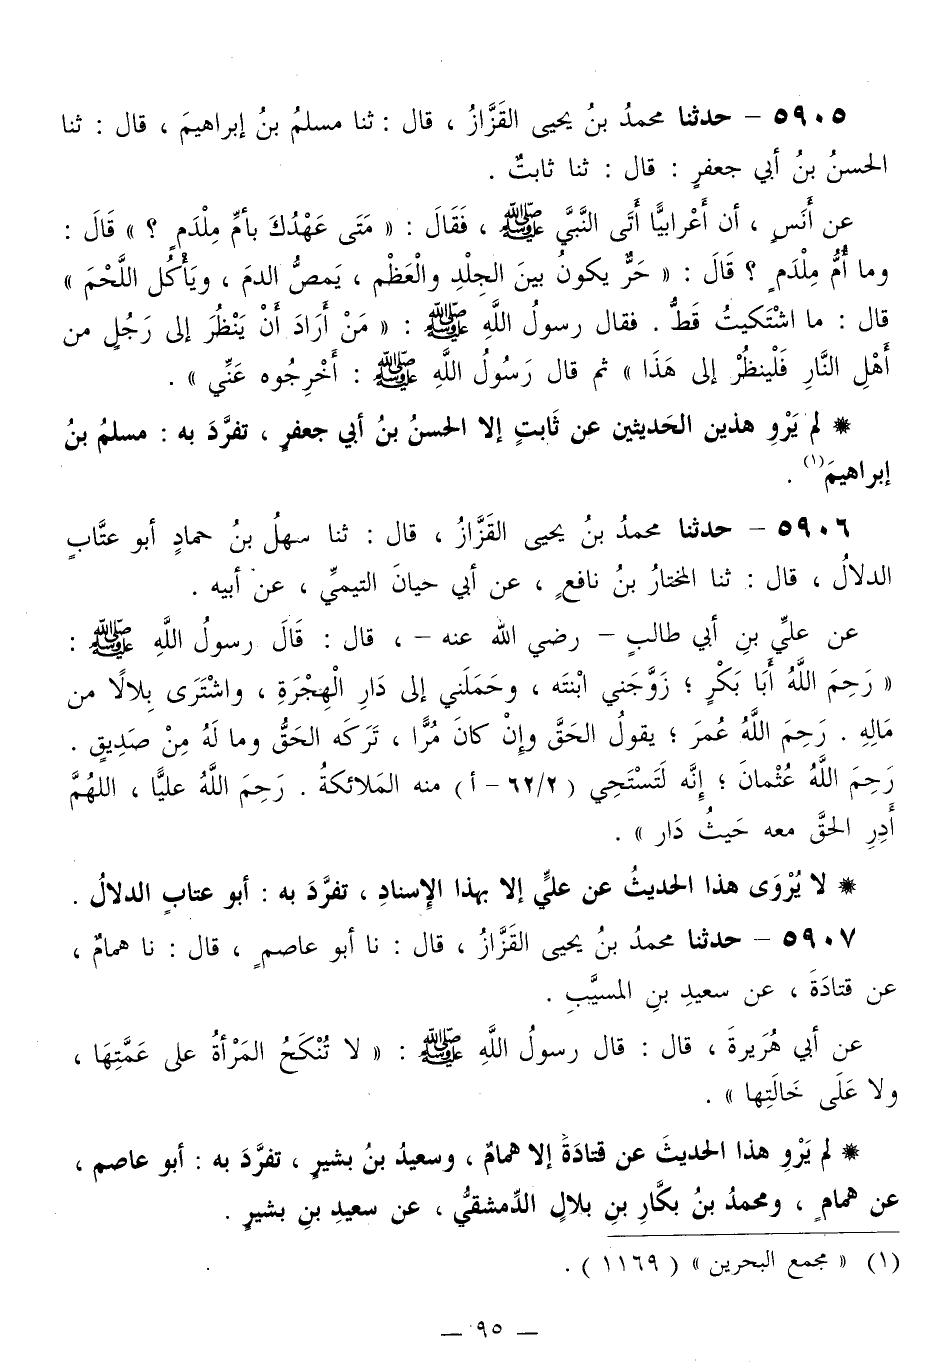 ٥٩٠٥ – حدثنا محمدُ بنُ يحيى القَزَّازُ ، قال : ثنا مسلمُ بنُ إبراهيمَ ، قال : ثنا
الحسنُ بنُ أبي جعفرٍ : قال : ثنا ثابتٌ .
عن أَنَسٍ ، أن أَعْرابيًّا أَتَى النَّبيَّ ﷺ ، فَقَالَ : « مَتَى عَهْدُكَ بأمِّ مِلْدَمٍ ؟ » قَالَ :
وما أُمُّ مِلْدَمٍ ؟ قَالَ : « حَرٌّ يكونُ بينَ الجِلْدِ والْعَظْم ، يَمصُّ الدمَ ، ويَأْكُل اللَّحْمَ »
قال : ما اشْتَكيتُ قَطُّ . فقال رسولُ اللَّهِ ﷺ : « مَنْ أَرَادَ أَنْ يَنْظُرَ إلى رَجُلٍ من
أَهْلِ النَّارِ فَلْينظُرْ إلى هَذَا » ثم قال رَسُولُ اللَّهِ ﷺ : أَخْرِجُوه عَنِّي » .
* لم يَرْوِ هذين الحَديثين عن ثَابتٍ إلا الحسنُ بنُ أبي جعفرٍ ، تفرَّدَ به : مسلمُ بنُ
إبراهيمَ(١) .
٥٩٠٦ – حدثنا محمدُ بنُ يحيى القَزَّازُ ، قال : ثنا سهلُ بنُ حمادٍ أبو عتَّابٍ
الدلالُ ، قال : ثنا المختارُ بنُ نافعٍ ، عن أبي حيانَ التيميِّ ، عن أبيه .
عن عليِّ بنِ أبي طالبٍ – رضي الله عنه – ، قال : قَالَ رسولُ اللَّهِ ﷺ :
« رَحِمَ اللَّهُ أَبَا بَكْرٍ ؛ زَوَّجَني ابْنتَه ، وحَمَلَني إلى دَارِ الْهِجْرَةِ ، واشْتَرَى بِلالًا من
مَالِهِ . رَحِمَ اللَّهُ عُمَرَ ؛ يقولُ الحَقَّ وإِنْ كانَ مُرًّا ، تَرَكَه الحَقُّ وما لَهُ مِنْ صَدِيقٍ .
رَحِمَ اللَّهُ عُثْمانَ ؛ إِنَّه لَتَسْتَحِي ( ٦٢/٢ – أ ) منه المَلائكةُ . رَحِمَ اللَّهُ عليًّا ، اللهُمَّ
أَدِرِ الحقَّ معه حَيثُ دَار » .
* لا يُرْوَى هذا الحديثُ عن عليٍّ إلا بهذا الإِسنادِ ، تفرَّدَ به : أبو عتابٍ الدلالُ .
٥٩٠٧ – حدثنا محمدُ بنُ يحيى القَزَّازُ ، قال : نا أبو عاصمٍ ، قال : نا همامٌ ،
عن قتادَةَ ، عن سعيدِ بنِ المسيَّبِ .
عن أبي هُرَيرةَ ، قال : قال رسولُ اللَّهِ ﷺ : « لا تُنْكَحُ المَرْأةُ على عَمَّتِهَا ،
ولا عَلَى خَالَتِها » .
* لم يَرْوِ هذا الحديثَ عن قتادَةَ إلا همامٌ ، وسعيدُ بنُ بشيرٍ ، تفرَّدَ به : أبو عاصم ،
عن همامٍ ، ومحمدُ بنُ بكَّارِ بنِ بلالٍ الدِّمشقيُّ ، عن سعيدِ بنِ بشيرٍ .
(١) « مجمع البحرين » ( ١١٦٩ ) .
– ٩٥ –